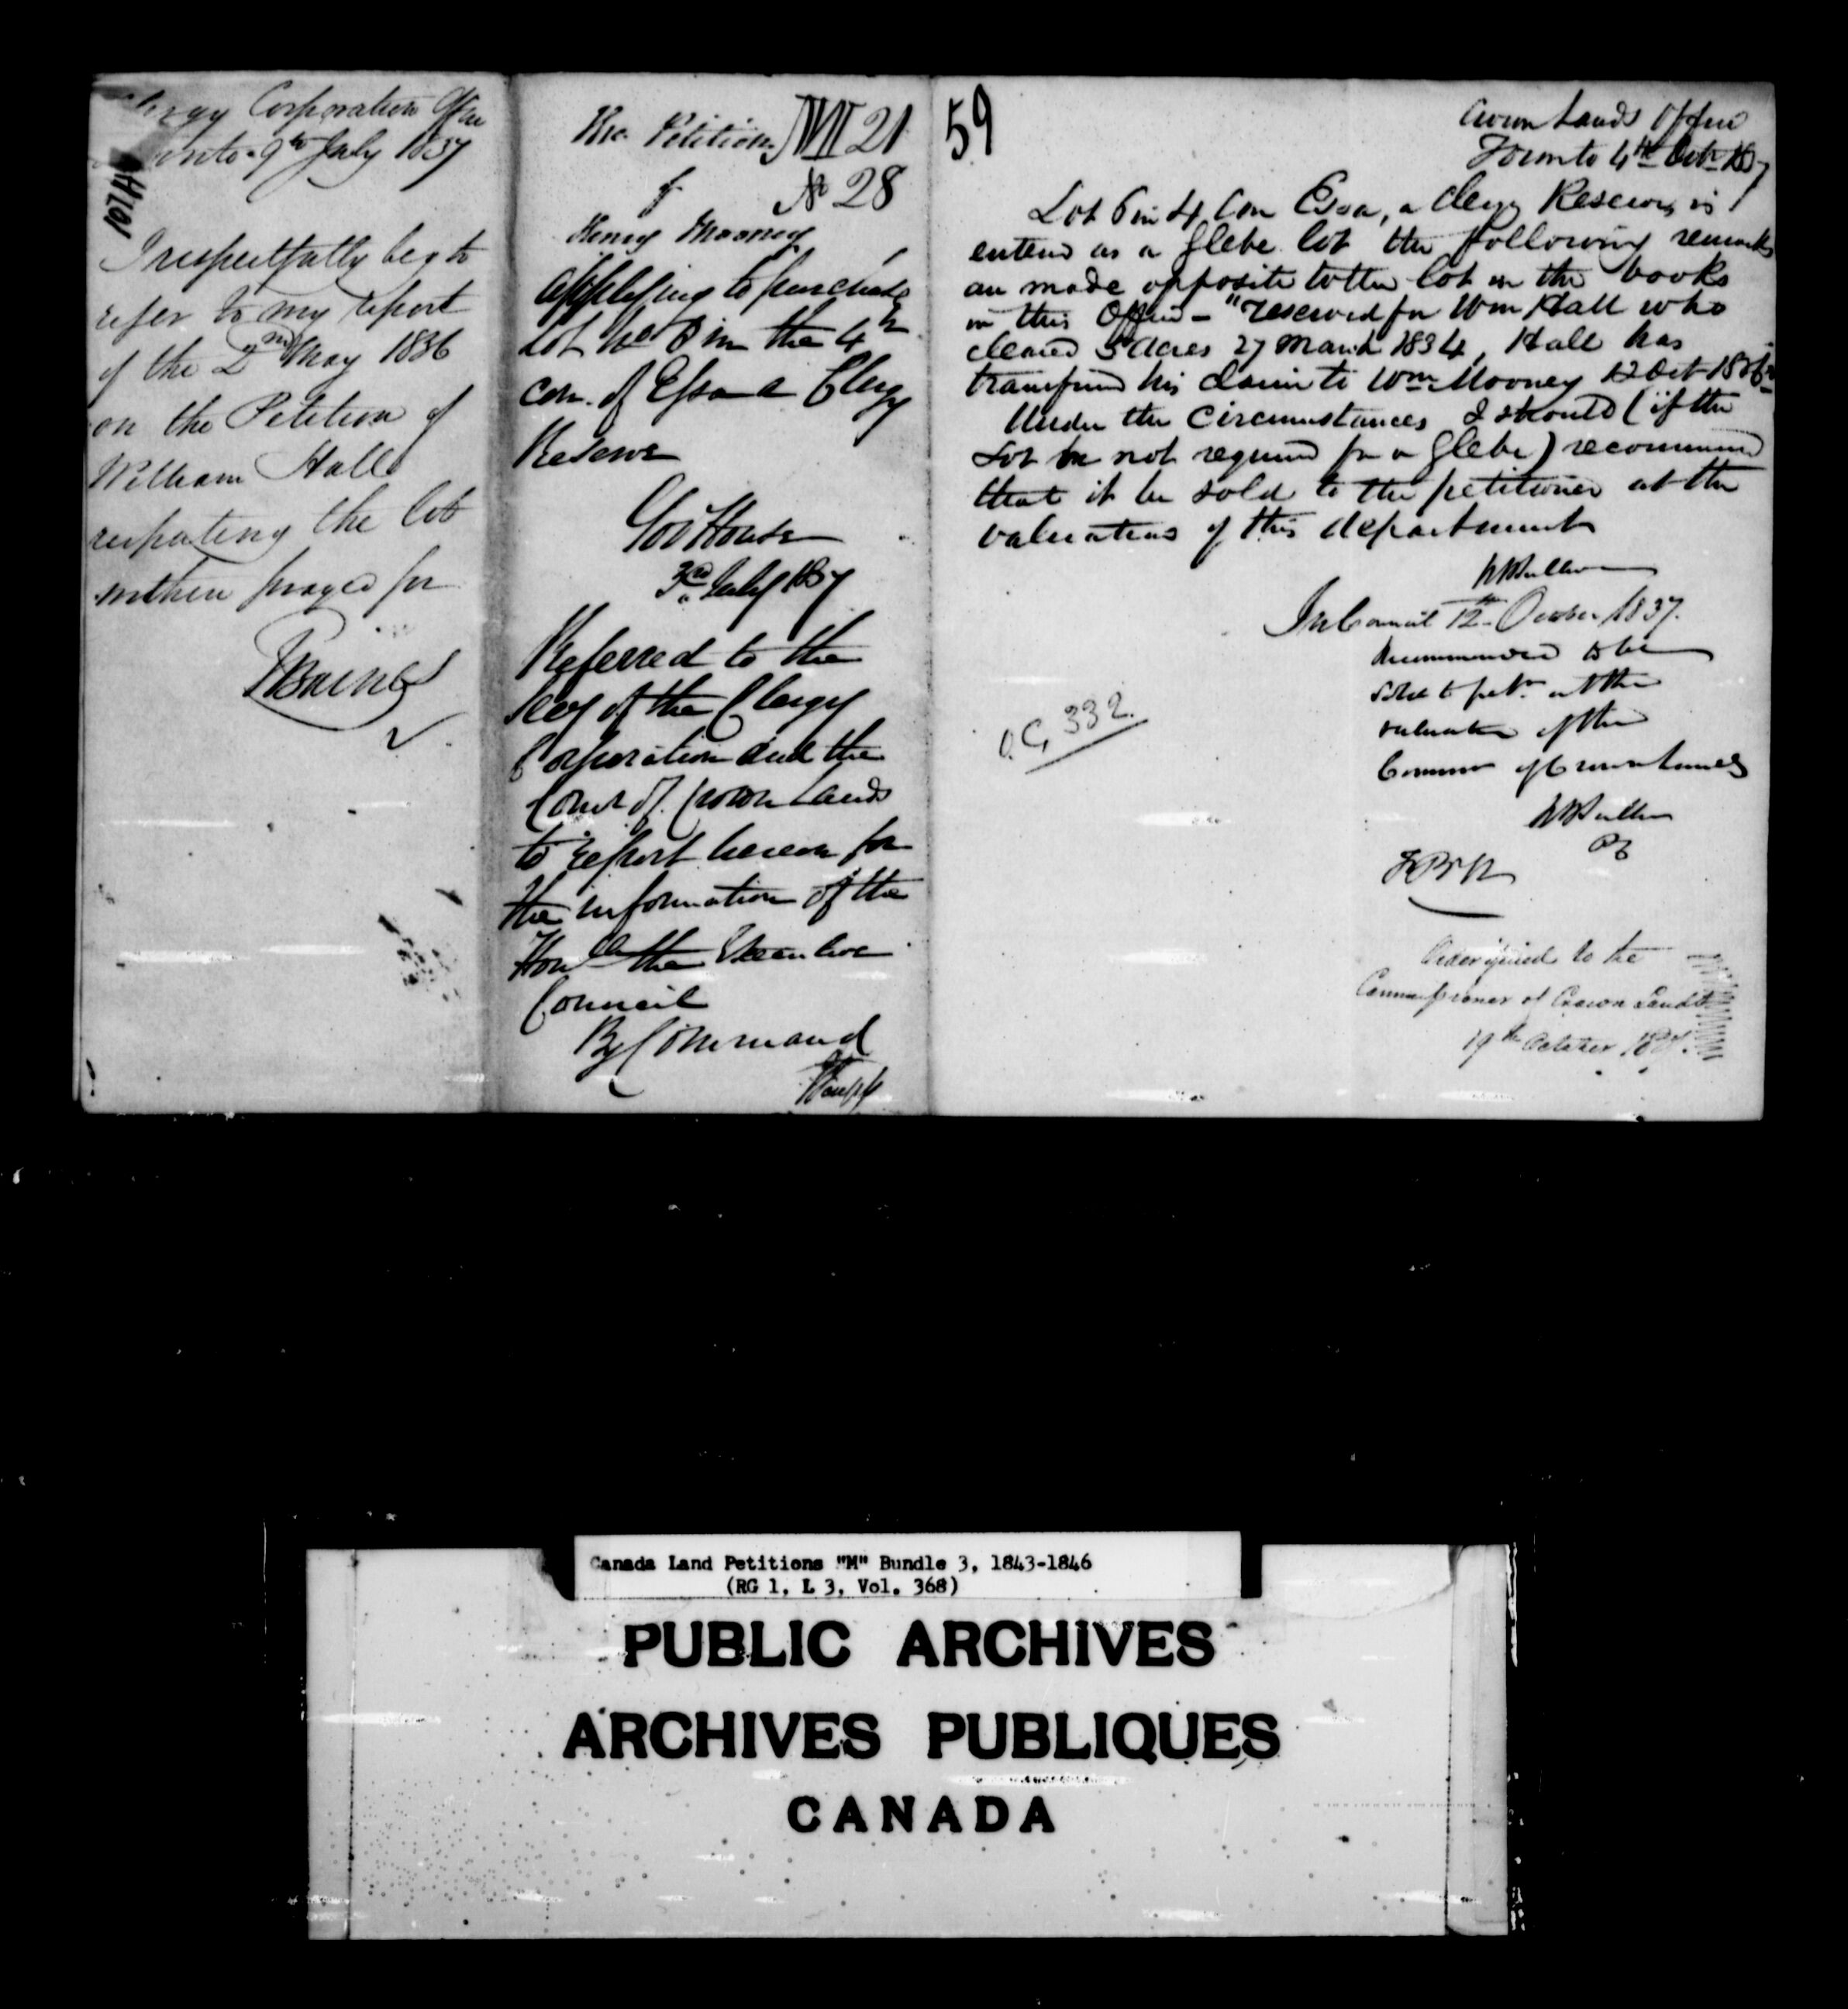 Clergy Corporation Office
Toronto 9th July 1837
I respectfully beg to
refer to my report
of the 2nd May 1836
on the Petition of
William Hall
respecting the lot
within prayed for
The Petition
of
Henry Mooney
21
No 28
applying to purchase
Lot No 6 in the 4th
con. of Essa a Clergy
Reserve
Govt House
3rd July 1837
Referred to the
Secy of the Clergy
Corporation and the
Comr of Crown Lands
to report hereon for
the information of the
Honble the Executive
Council
By Command
59
Crown Lands Office
Toronto 4th Octr 1837
Lot 6 in 4 Con Essa, a Clergy Reserve, is
entered as a glebe lot the following remarks
are made opposite to the lot in the books
in this Office - "reserved for Wm Hall who
cleared 5 acres 27 March 1834, Hall has
transferred his claim to Wm Mooney 12 Oct 1836"
Under the circumstances I should (if the
Lot be not required for a glebe) recommend
that it be sold to the petitioner at the
valuation of this department
RBSullivan
In Council 12th October 1837.
Recommended to be
sold to petr at the
valuation of the
Commr of Crown Lands
RBSullivan
PC
O.C, 332.
Order issued to the
Commissioner of Crown Lands
19th October 1837.
Canada Land Petitions "M" Bundle 3, 1843-1846
(RG 1, L 3, Vol. 368)
PUBLIC ARCHIVES
ARCHIVES PUBLIQUES
CANADA